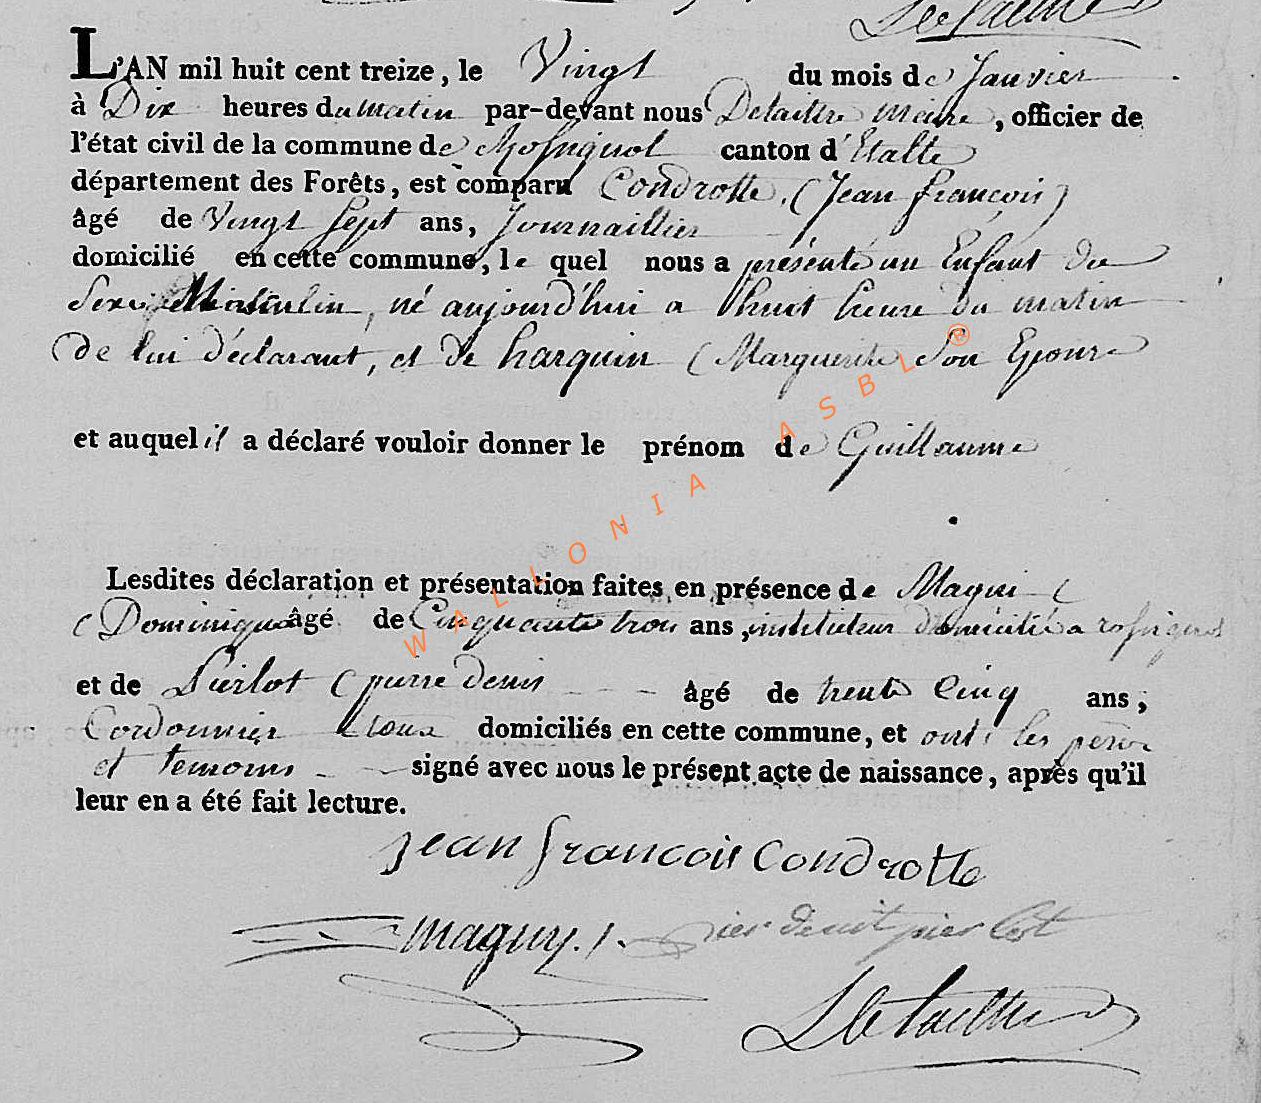 L'AN mil huit cent treize, le Vingt du mois de Janvier
à Dix heures du matin par-devant nous Detaille maire, officier de
l'état civil de la commune de Rossignol canton d'Etalle
département des Forêts, est comparu Condrotte, (Jean françois)
âgé de Vingt Sept ans, Journaillier
domicilié en cette commune, le quel nous a présenté un Enfant du
Sexe Masculin, né aujourd'hui a huit heure du matin
de lui déclarant, et de harquin (Marguerite Son Epouse
et auquel il a déclaré vouloir donner le prénom de Guillaume
Lesdites déclaration et présentation faites en présence de Magui (
(Dominique âgé de Cinquante trois ans, instituteur domicilié a rossignol
et de Pierlot (pierre denis âgé de trente Cinq ans,
Cordonnier tous domiciliés en cette commune, et ont les père
et temoins signé avec nous le présent acte de naissance, après qu'il
leur en a été fait lecture.
jean francois Condrotte
maguy. pier denit pier lot
Detaille
WALLONIA ASBL ®